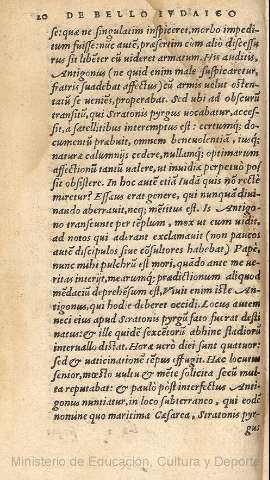 20 DE BELLO IVDAICO
se: quæ ne singulatim inspiceret, morbo impedi-
tum fuisse: nūc autē, præsertim cum aliò discessu-
rus sit libēter cū uideret armatum. His auditis,
Antigonus (ne quid enim male suspicaretur,
fratris suadebat affectus) cū armis uelut osten-
tatū se ueniēs, properabat. Sed ubi ad obscurū
transitū, qui Stratonis pyrgus uocabatur, acces-
sit, à satellitibus interemptus est: certumq́; do-
cumentū præbuit, omnem beneuolentiā, iusq́;
naturæ calumnijs cedere, nullamq́; optimarum
affectionū tantū ualere, ut inuidiæ perpetuò pos
sit obsistere. In hoc autē etiā Iudā quis nō rectè
miretur? Essæus erat genere, qui nunquā diui-
nando aberrauit, neq; mētitus est. Is Antigo-
no transeunte per tēplum, mox ut eum uidit,
ad notos qui aderant exclamauit (non paucos
autē discipulos siue cōsultores habebat) Papè,
nunc mihi pulchrū est mori, quādo ante me ue-
ritas interijt, mearumq́; prædictionum aliquod
mēdaciū deprehēsum est. Viuit enim iste An-
tigonus, qui hodie deberet occidi. Locus autem
neci eius apud Stratonis pyrgū fato fuerat desti
natus: & ille quidē sexcētoris abhinc stadiorū
interuallo distat. Horæ uerò diei sunt quatuor:
sed & uaticinationē tēpus effugit. Hæc locutus
senior, mœsto uultu & mēte solicita secū mul-
ta reputabat: & paulò pòst interfectus Anti-
gonus nuntiatur, in loco subterraneo, qui eodē
nomine quo maritima Cæsarea, Stratonis pyr-
gus
Ministerio de Educación, Cultura y Deporte